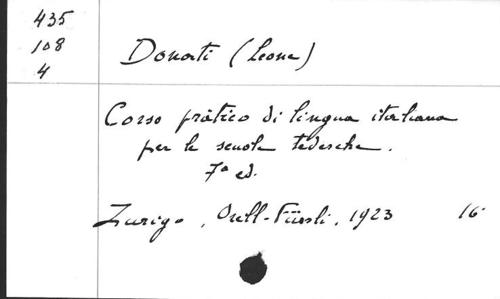 435
108
4
Donati (Leone)
Corso pratico di lingua italiana
per le scuole tedesche.
7ª ed.
Zurigo, Orell-Füssli, 1923 16°